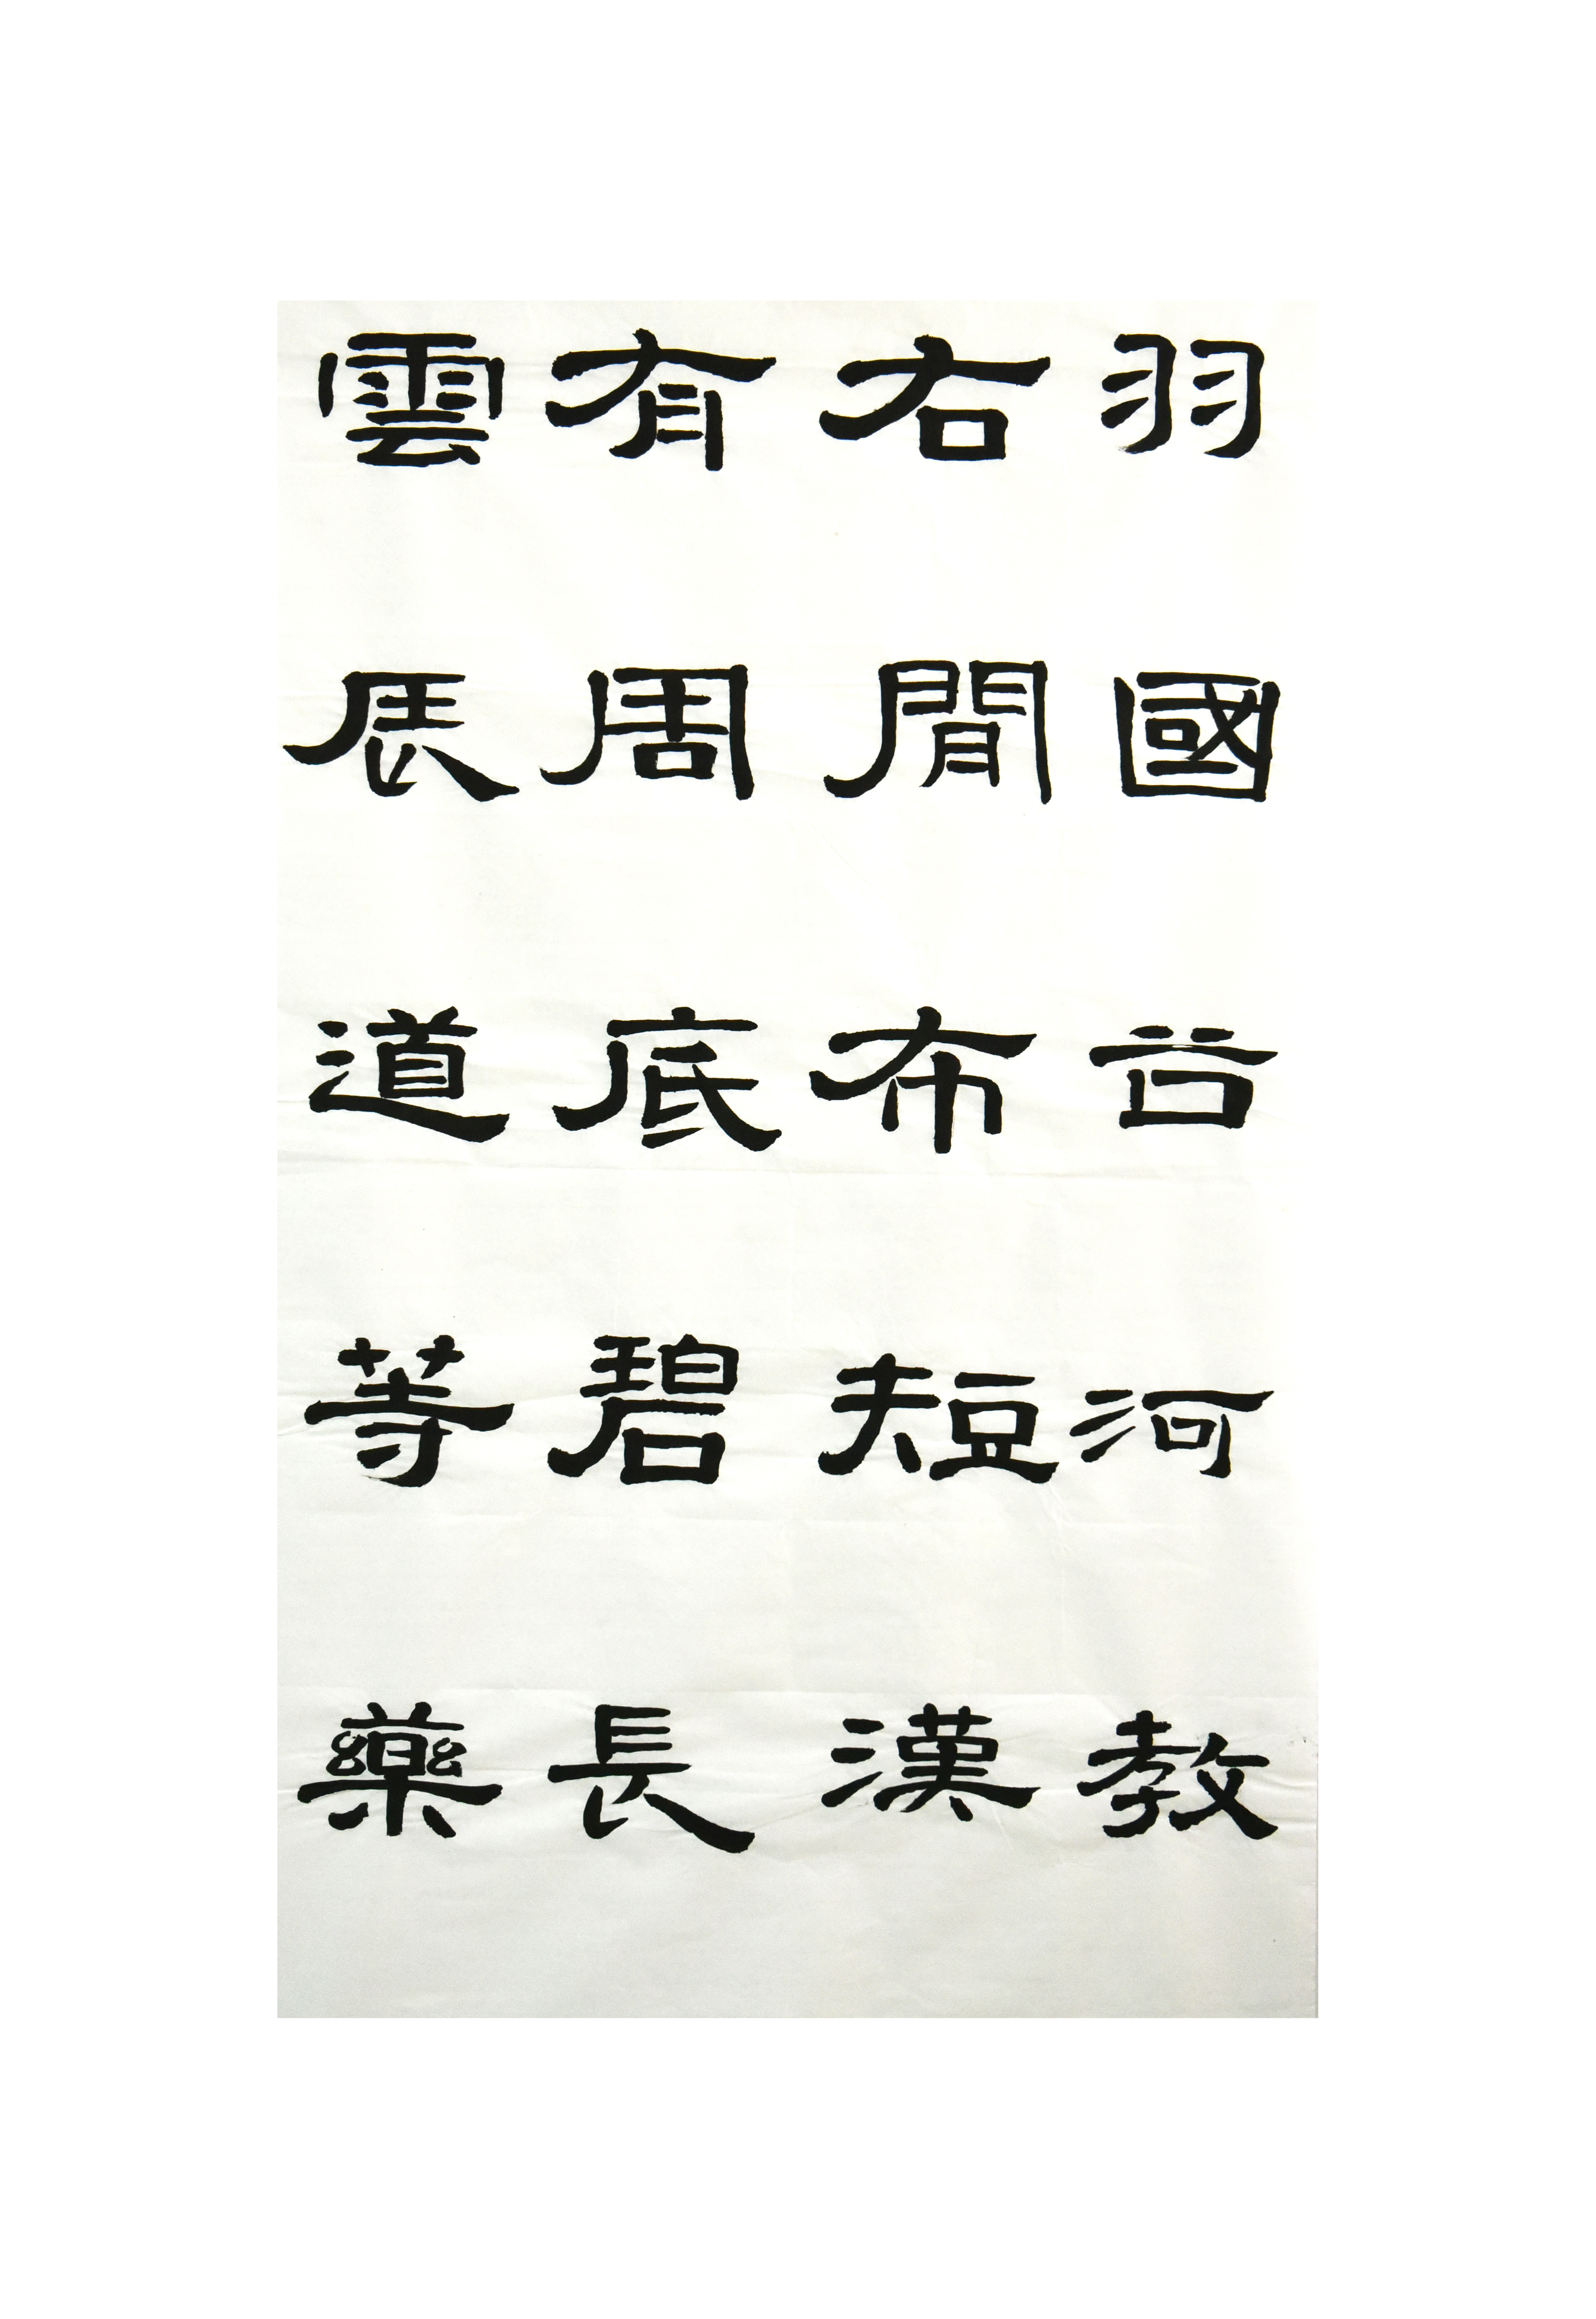 羽國䒤河教
右閒布短漢
有周底碧長
雲辰道等藥